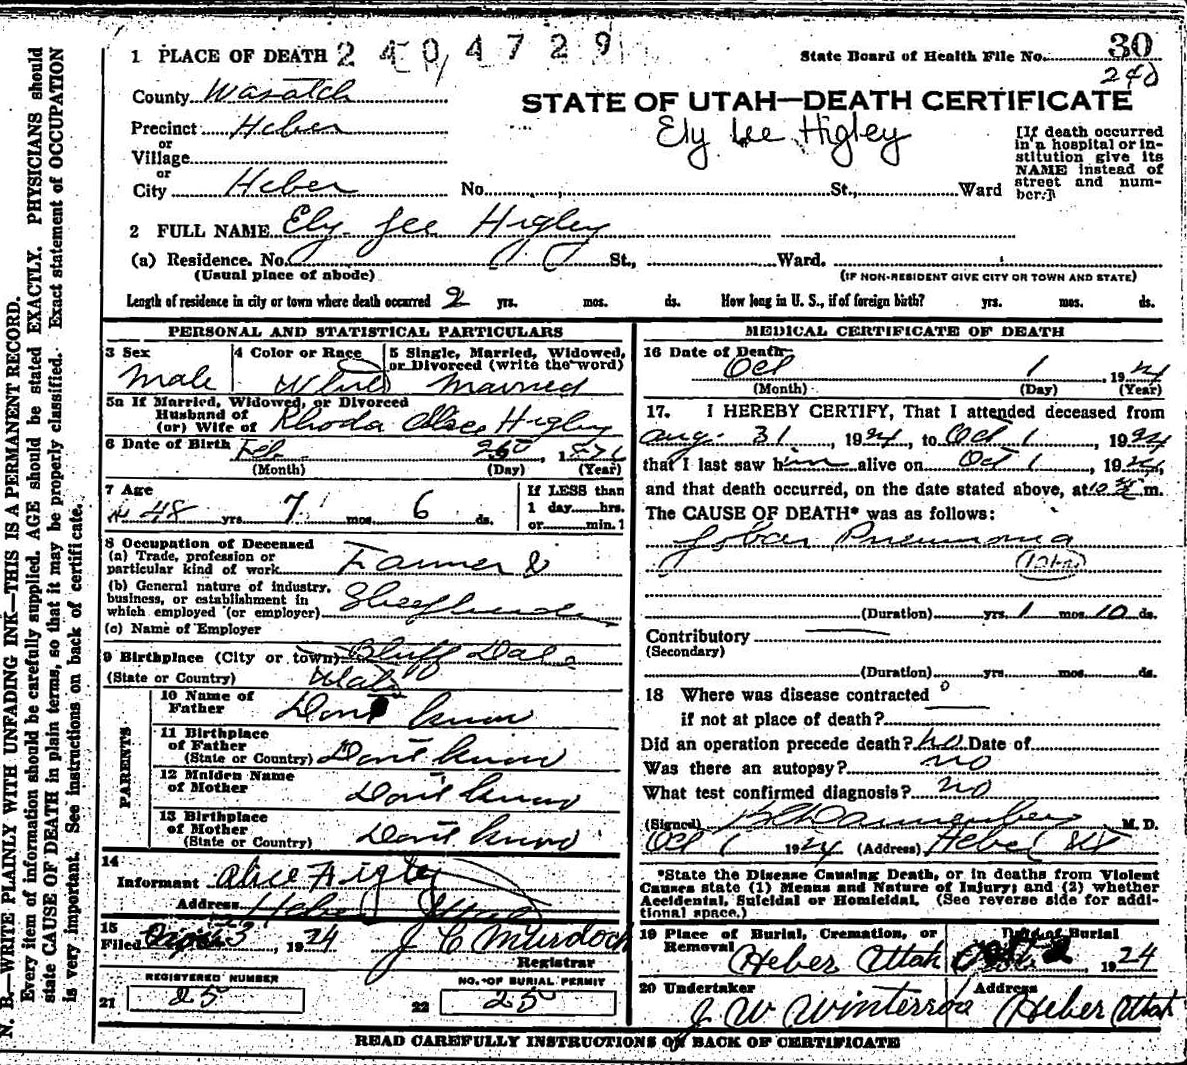 N. B.—WRITE PLAINLY WITH UNFADING INK—THIS IS A PERMANENT RECORD.
Every item of information should be carefully supplied. AGE should be stated EXACTLY. PHYSICIANS should
state CAUSE OF DEATH in plain terms, so that it may be properly classified. Exact statement of OCCUPATION
is very important. See instructions on back of certificate.
1 PLACE OF DEATH 2404729
State Board of Health File No. 30
240
County Wasatch
STATE OF UTAH—DEATH CERTIFICATE
Ely Lee Higley
Precinct Heber
or
Village
or
City Heber No. St., Ward
[If death occurred
in a hospital or in-
stitution give its
NAME instead of
street and num-
ber.]
2 FULL NAME Ely Lee Higley
(a) Residence. No. St., Ward.
(Usual place of abode) (IF NON-RESIDENT GIVE CITY OR TOWN AND STATE)
Length of residence in city or town where death occurred 2 yrs. mos. ds. How long in U. S., if of foreign birth? yrs. mos. ds.
PERSONAL AND STATISTICAL PARTICULARS
3 Sex 4 Color or Race 5 Single, Married, Widowed,
or Divorced (write the word)
Male White Married
5a If Married, Widowed, or Divorced
Husband of
(or) Wife of Rhoda Alice Higley
6 Date of Birth Feb 25
(Month) (Day) (Year)
7 Age If LESS than
48 yrs 7 mos. 6 ds. 1 day hrs.
or min.
8 Occupation of Deceased
(a) Trade, profession or
particular kind of work Farmer &
(b) General nature of industry,
business, or establishment in
which employed (or employer)
(c) Name of Employer
9 Birthplace (City or town) Bluff Dale
(State or Country) Utah
PARENTS
10 Name of
Father Dont know
11 Birthplace
of Father
(State or Country) Dont know
12 Maiden Name
of Mother Dont know
13 Birthplace
of Mother
(State or Country) Dont know
14
Informant Alice Higley
Address Heber Utah
15
Filed 3, 1924 J C Murdoch
Registrar
REGISTERED NUMBER NO. OF BURIAL PERMIT
21 25 22 25
MEDICAL CERTIFICATE OF DEATH
16 Date of Death
Oct 1, 1924
(Month) (Day) (Year)
17. I HEREBY CERTIFY, That I attended deceased from
Aug. 31, 1924, to Oct 1, 1924
that I last saw him alive on Oct 1, 1924,
and that death occurred, on the date stated above, at 10 m.
The CAUSE OF DEATH* was as follows:
Lobar Pneumonia
(Duration) yrs. 1 mos. 10 ds.
Contributory
(Secondary)
(Duration) yrs. mos. ds.
18 Where was disease contracted
if not at place of death?
Did an operation precede death? No Date of
Was there an autopsy? no
What test confirmed diagnosis? no
(Signed) M. D.
Oct 1 1924 (Address) Heber Ut
*State the Disease Causing Death, or in deaths from Violent
Causes state (1) Means and Nature of Injury; and (2) whether
Accidental, Suicidal or Homicidal. (See reverse side for addi-
tional space.)
19 Place of Burial, Cremation, or
Removal
Date of Burial
Heber Utah Oct 2 1924
20 Undertaker Address
J W Winterrose Heber Utah
READ CAREFULLY INSTRUCTIONS ON BACK OF CERTIFICATE